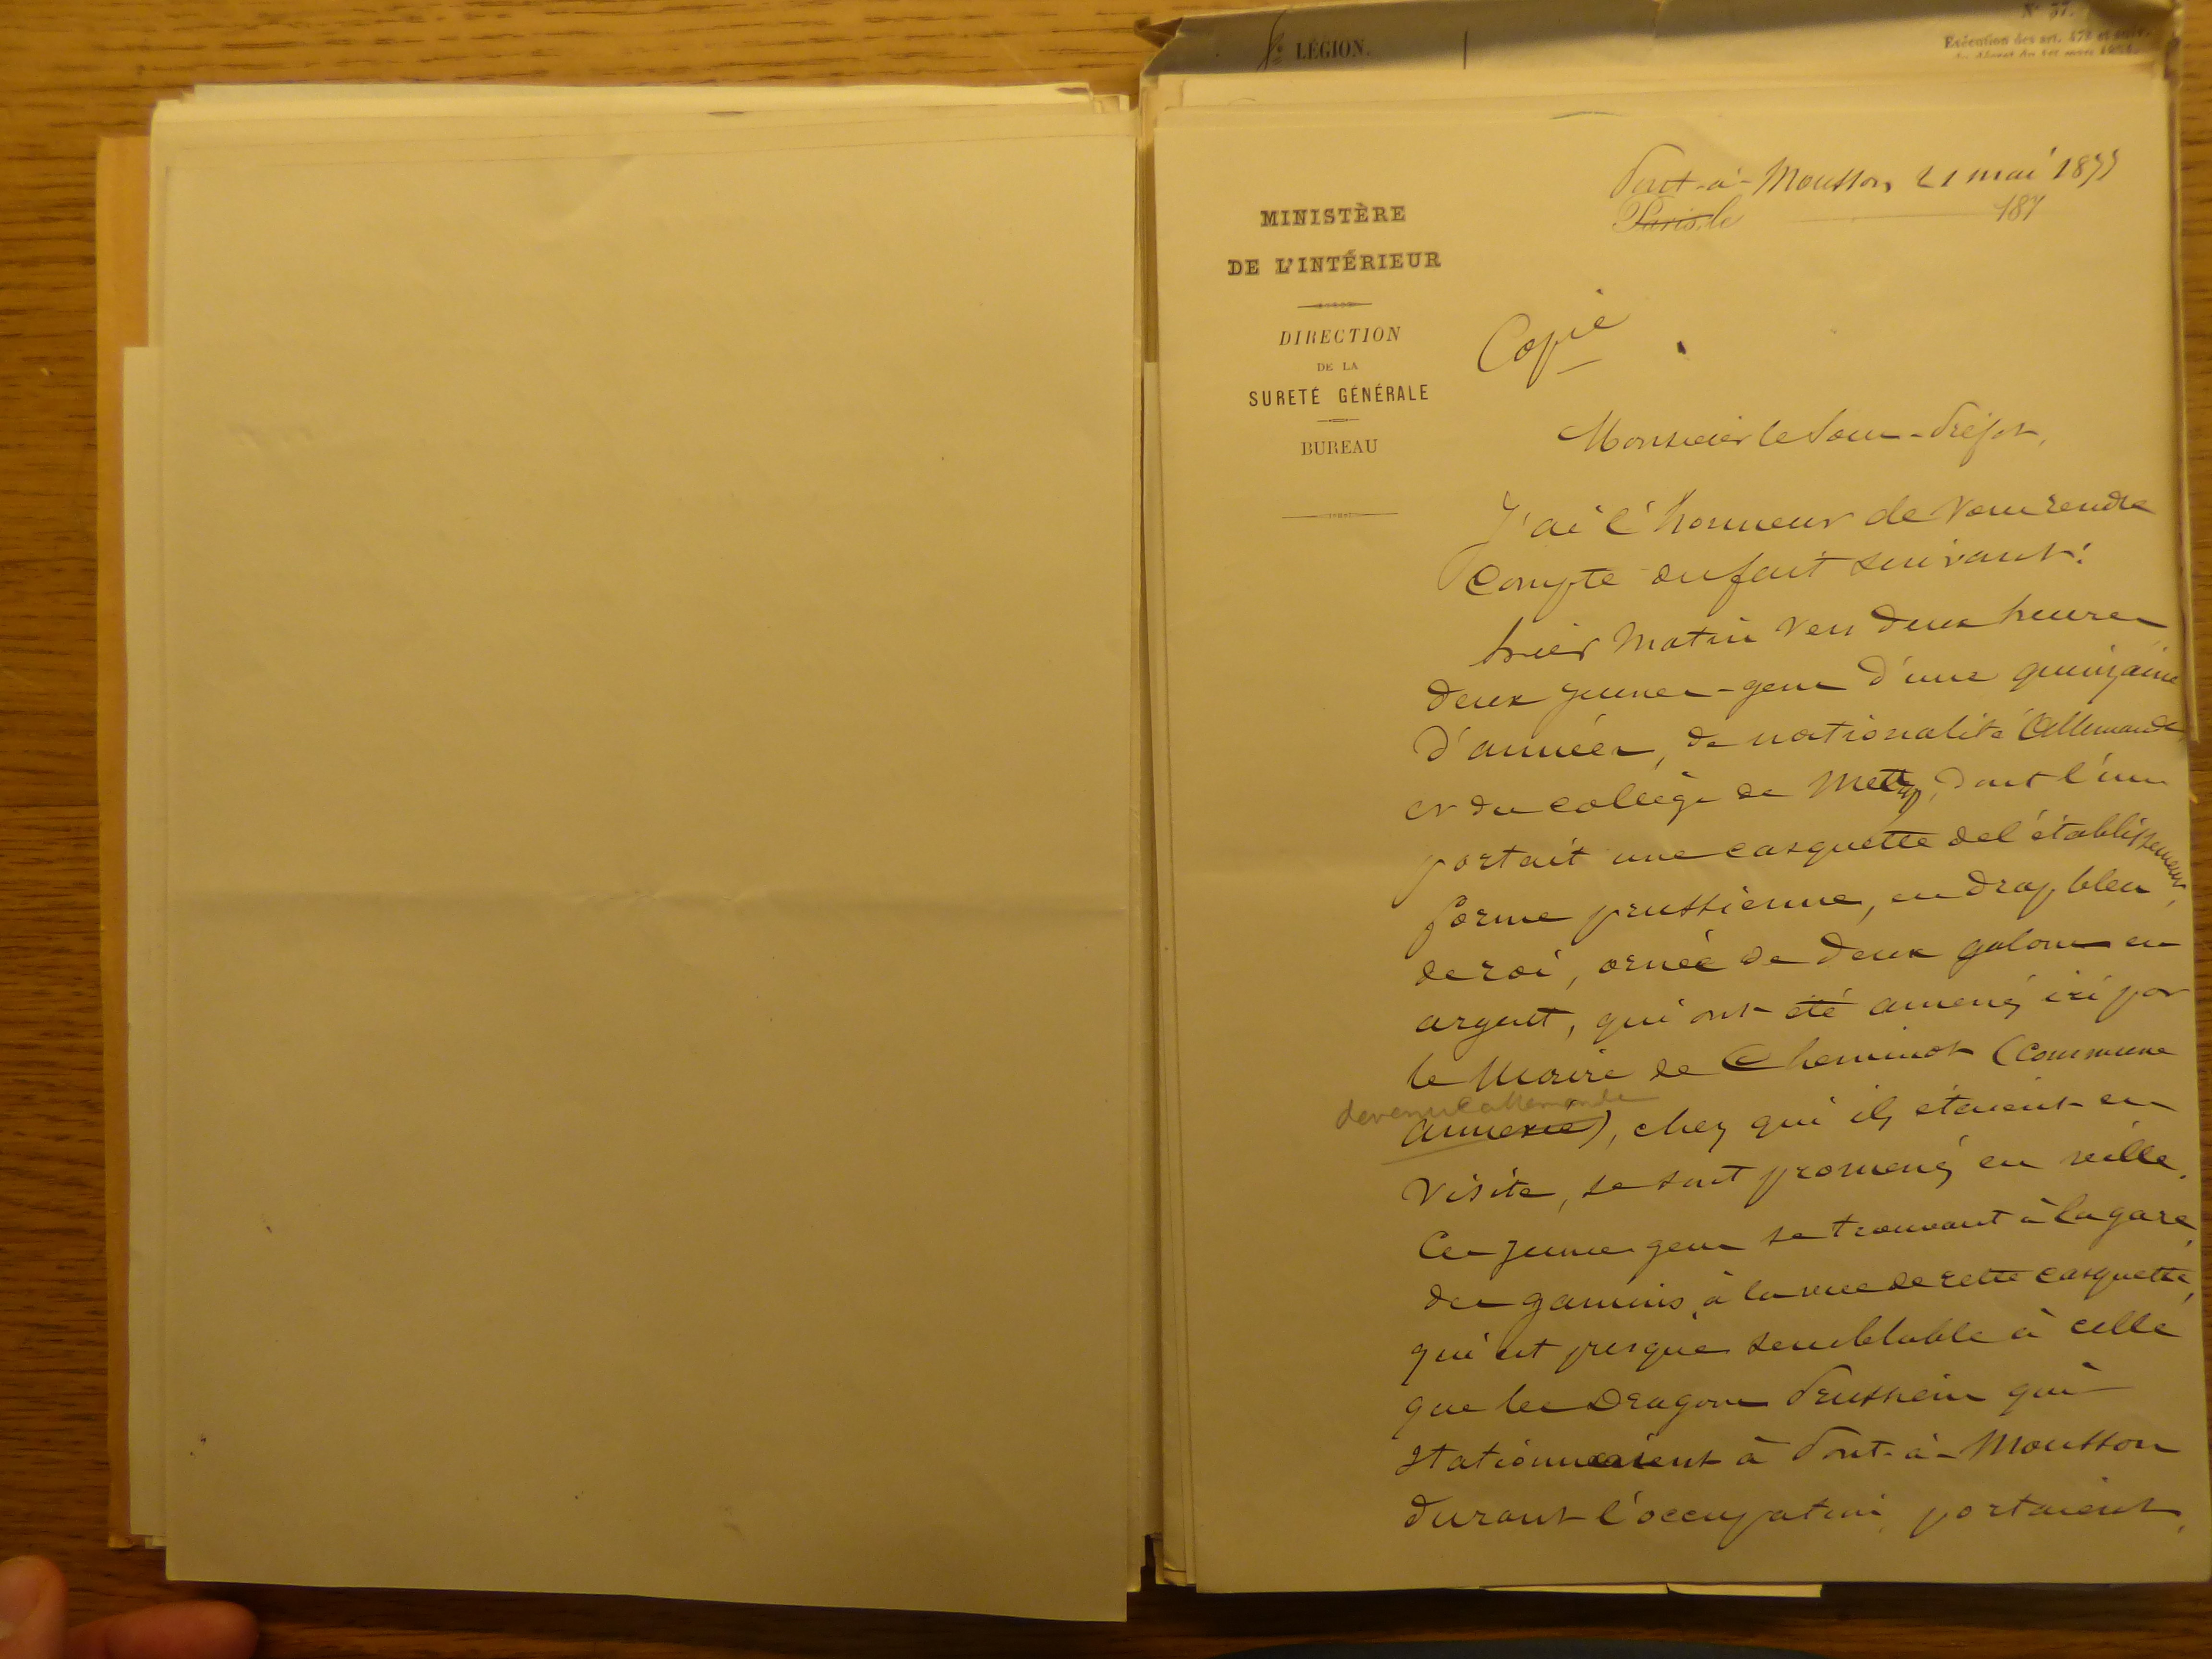 LÉGION.
N° 37.
Exécution des art. 472 et suiv.
du décret du 1er mars 1854.
Pont-à-Mousson, 21 mai 1877
Paris, le 187
MINISTÈRE
DE L'INTÉRIEUR
DIRECTION
DE LA
SURETÉ GÉNÉRALE
BUREAU
Copie
Monsieur le Sous-Préfet,
J'ai l'honneur de vous rendre
Compte du fait suivant:
hier Matin vers deux heures
deux jeunes-gens d'une quinzaine
d'années, de nationalité Allemande,
et du collège de Metz, dont l'un
portait une casquette de l'établissement,
forme prussienne, en drap bleu
de roi, ornée de deux galons en
argent, qui ont été amenés ici par
le Maire de Cheminot (Commune
devenue allemande
annexée), chez qui ils étaient en
visite, se sont promenés en ville.
Ces jeunes gens se trouvant à la gare,
des gamins, à la vue de cette casquette,
qui est presque semblable à celle
que les Dragons Prussiens qui
stationnaient à Pont-à-Mousson
durant l'occupation, portaient,